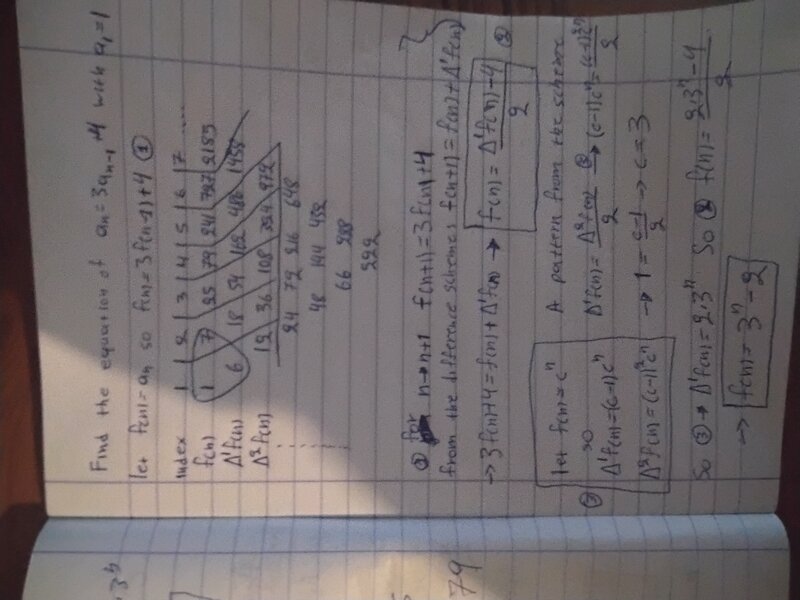 Find the equation of aₙ = 3aₙ₋₁ + 4 with a₁ = 1
let f(n) = aₙ so f(n) = 3f(n-1) + 4 ①
index 1 | 2 | 3 | 4 | 5 | 6 | 7 .....
f(n) 1 7 25 79 241 727 2185
Δ¹f(n) 6 18 54 162 486 1458
Δ²f(n) 12 36 108 324 972
24 72 216 648
48 144 432
66 288
222
① for n→n+1 f(n+1) = 3f(n)+4
from the difference scheme: f(n+1) = f(n) + Δ¹f(n)
→ 3f(n)+4 = f(n) + Δ¹f(n) → f(n) = (Δ¹f(n) - 4)/2 ②
let f(n) = cⁿ
③ so
Δ¹f(n) = (c-1)cⁿ
Δ²f(n) = (c-1)²cⁿ
A pattern from the scheme
Δ¹f(n) = Δ²f(n)/2 ③→ (c-1)cⁿ = (c-1)²cⁿ/2
→ 1 = (c-1)/2 → c = 3
So ③ → Δ¹f(n) = 2.3ⁿ So ② f(n) = (2.3ⁿ - 4)/2
→ f(n) = 3ⁿ - 2
79